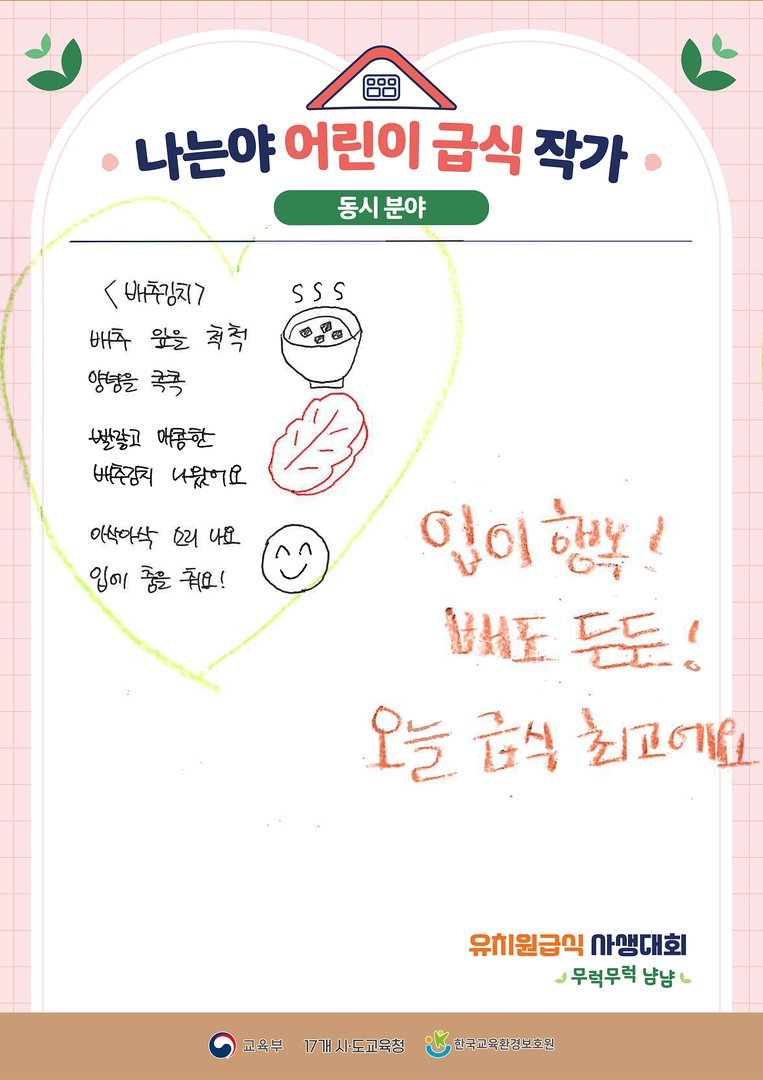 나는야 어린이 급식 작가
동시 분야
<배추김치>
배추 잎을 척척
양념을 콕콕
빨갛고 매콤한
배추김치 나왔어요
아삭아삭 소리 나요
입에 춤을 춰요!
입이 행복!
배도 든든!
오늘 급식 최고에요
유치원급식 사생대회
무럭무럭 냠냠
교육부 17개 시·도교육청 한국교육환경보호원